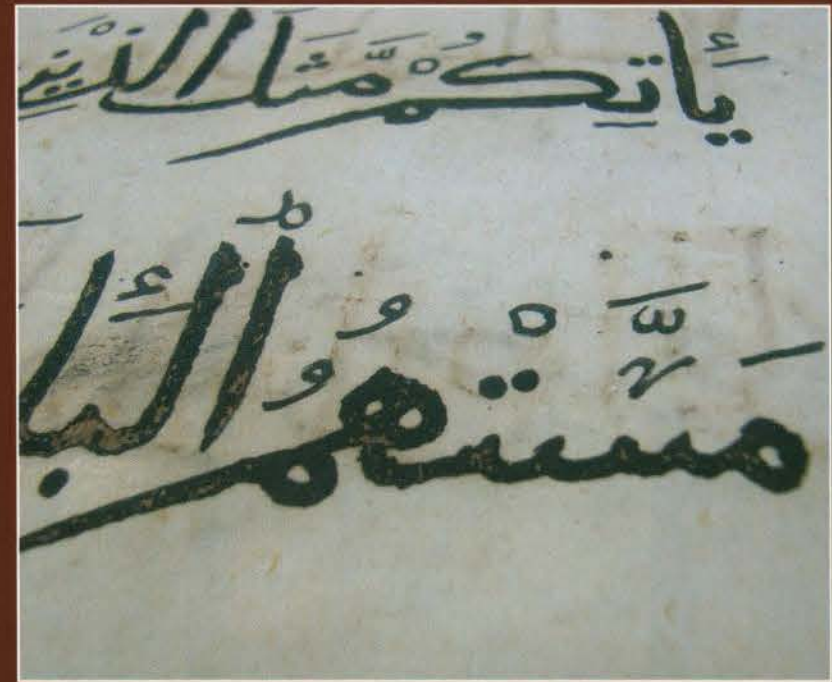 يَأتِكُمْ مَّثَلُ الَّذِيْنَ
مَسَّتْهُمُ الْبَأ